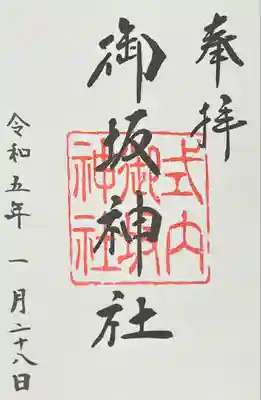 奉拝
御坂神社
式内
御坂
神社
令和五年一月二十八日